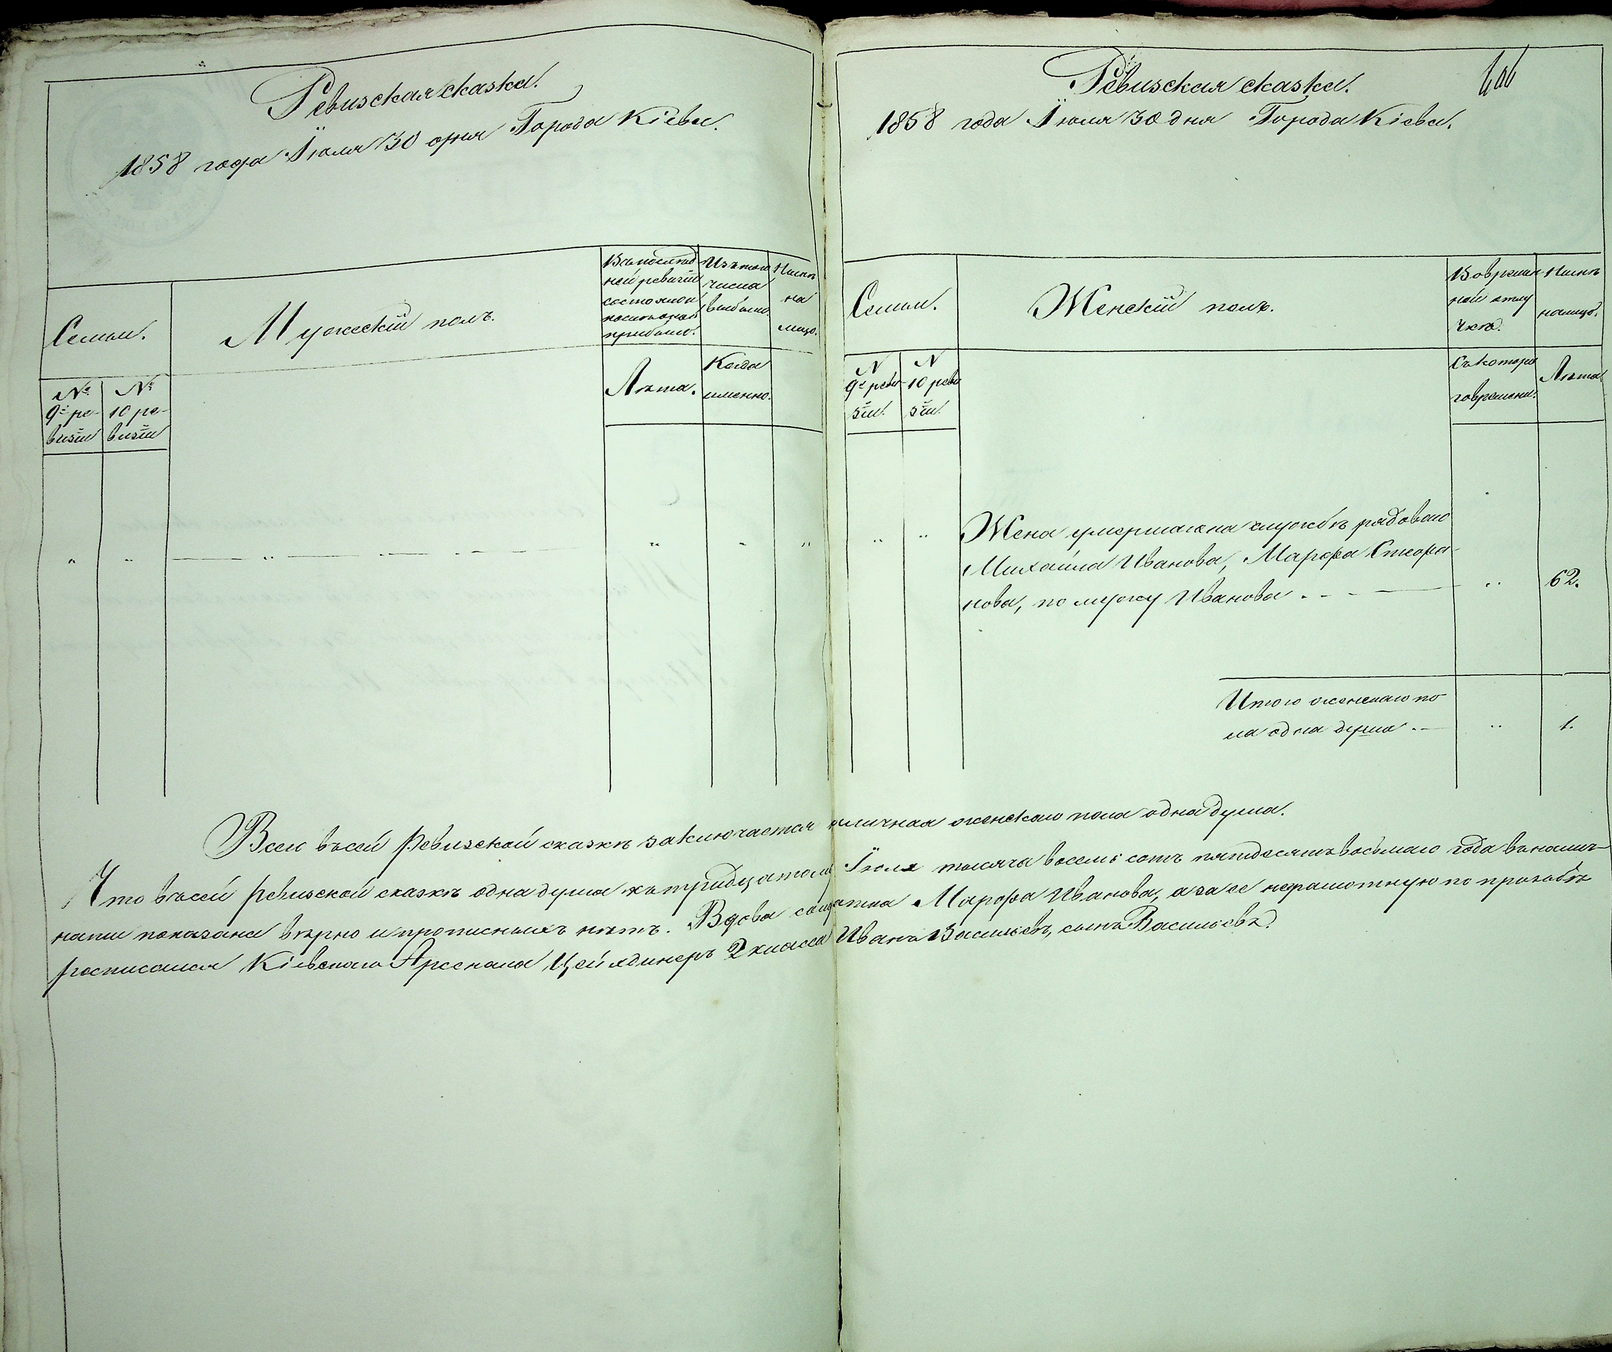 Ревизская сказка.
1858 года Іюля 30 дня Города Кіева.
Семьи.
Мужескій полъ.
Въ послѣд
ней ревизіи
состояло и
после оной
прибыло.
Изъ того
числа
выбыло
Нынѣ
на
лицо.
№
9й ре-
визіи
№
10 ре-
визіи
Лѣта.
Когда
именно.
Ревизская сказка.
1858 года Іюля 30 дня Города Кіева.
Семьи.
Женскій полъ.
Во времен
ной отлу
чкѣ.
Нынѣ
налицо.
№
9й реви-
зіи.
№
10 реви
зіи.
Съ котора
го времени.
Лѣта.
Жена умершаго на службѣ рядоваго
Михайла Иванова, Марфа Степа-
нова, по мужу Иванова
62.
Итого женскаго по
ла одна душа
1.
Всего въ сей ревизской сказкѣ заключается наличная женскаго пола одна душа.
Что въ сей ревизской сказкѣ одна душа къ тридцатому Іюля тысяча восемь сотъ пятдесятъ восьмаго года
показана вѣрно и прописныхъ нѣтъ. Вдова солдатка Марфа Иванова, а за ее неграмотную по прозьбѣ
росписался Кіевскаго Арсенала Цейхдинеръ 2 класса Иванъ Васильевъ, сынъ Васильевъ.